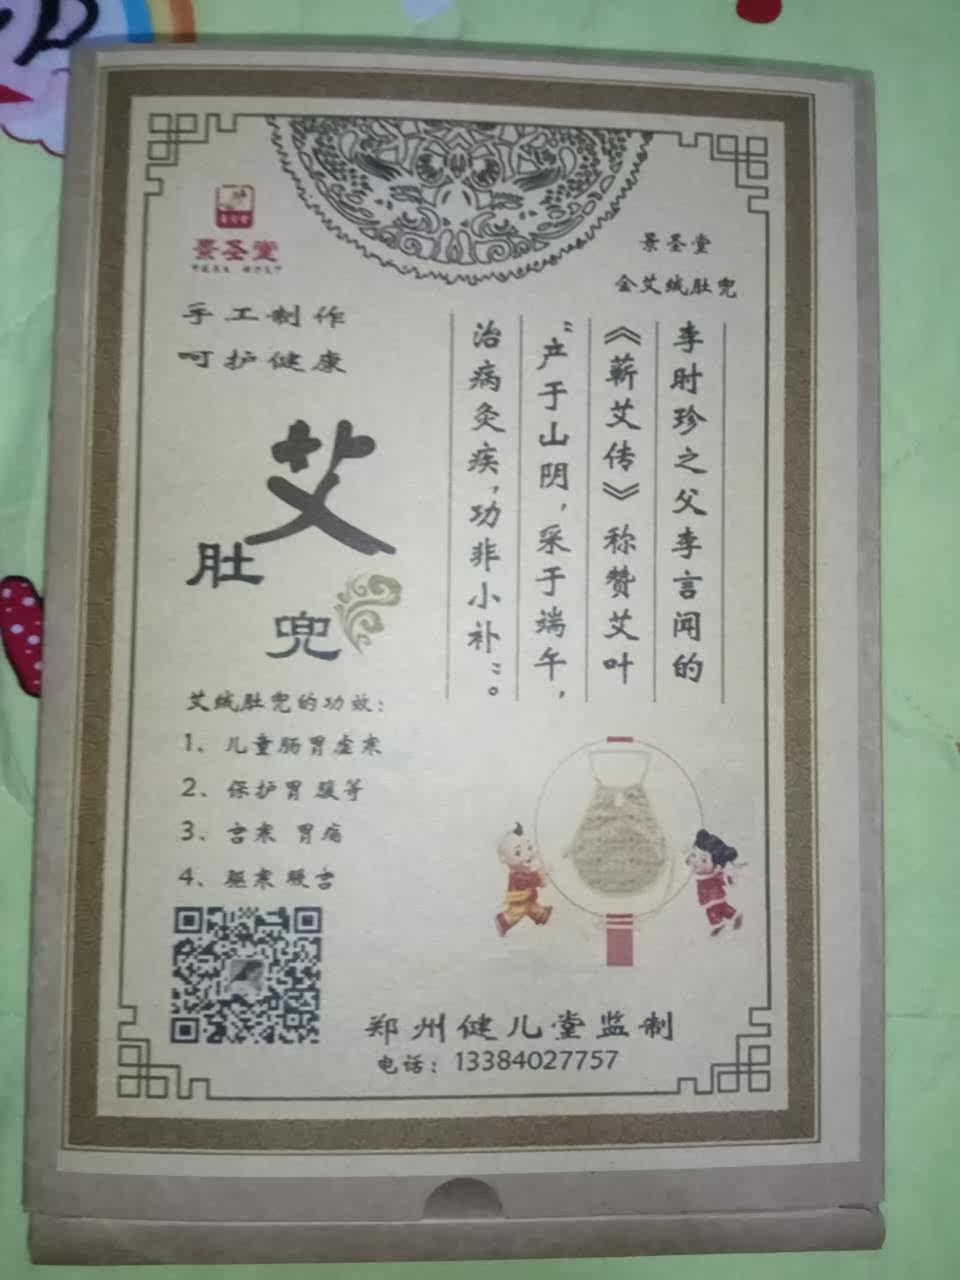 景圣堂
手工制作
呵护健康
艾
肚
兜
景圣堂
金艾绒肚兜
李时珍之父李言闻的
《蕲艾传》称赞艾叶
“产于山阴，采于端午，
治病灸疾，功非小补”。
艾绒肚兜的功效：
1、儿童肠胃虚寒
2、保护胃腹等
3、宫寒 胃痛
4、驱寒暖宫
郑州健儿堂监制
电话：13384027757